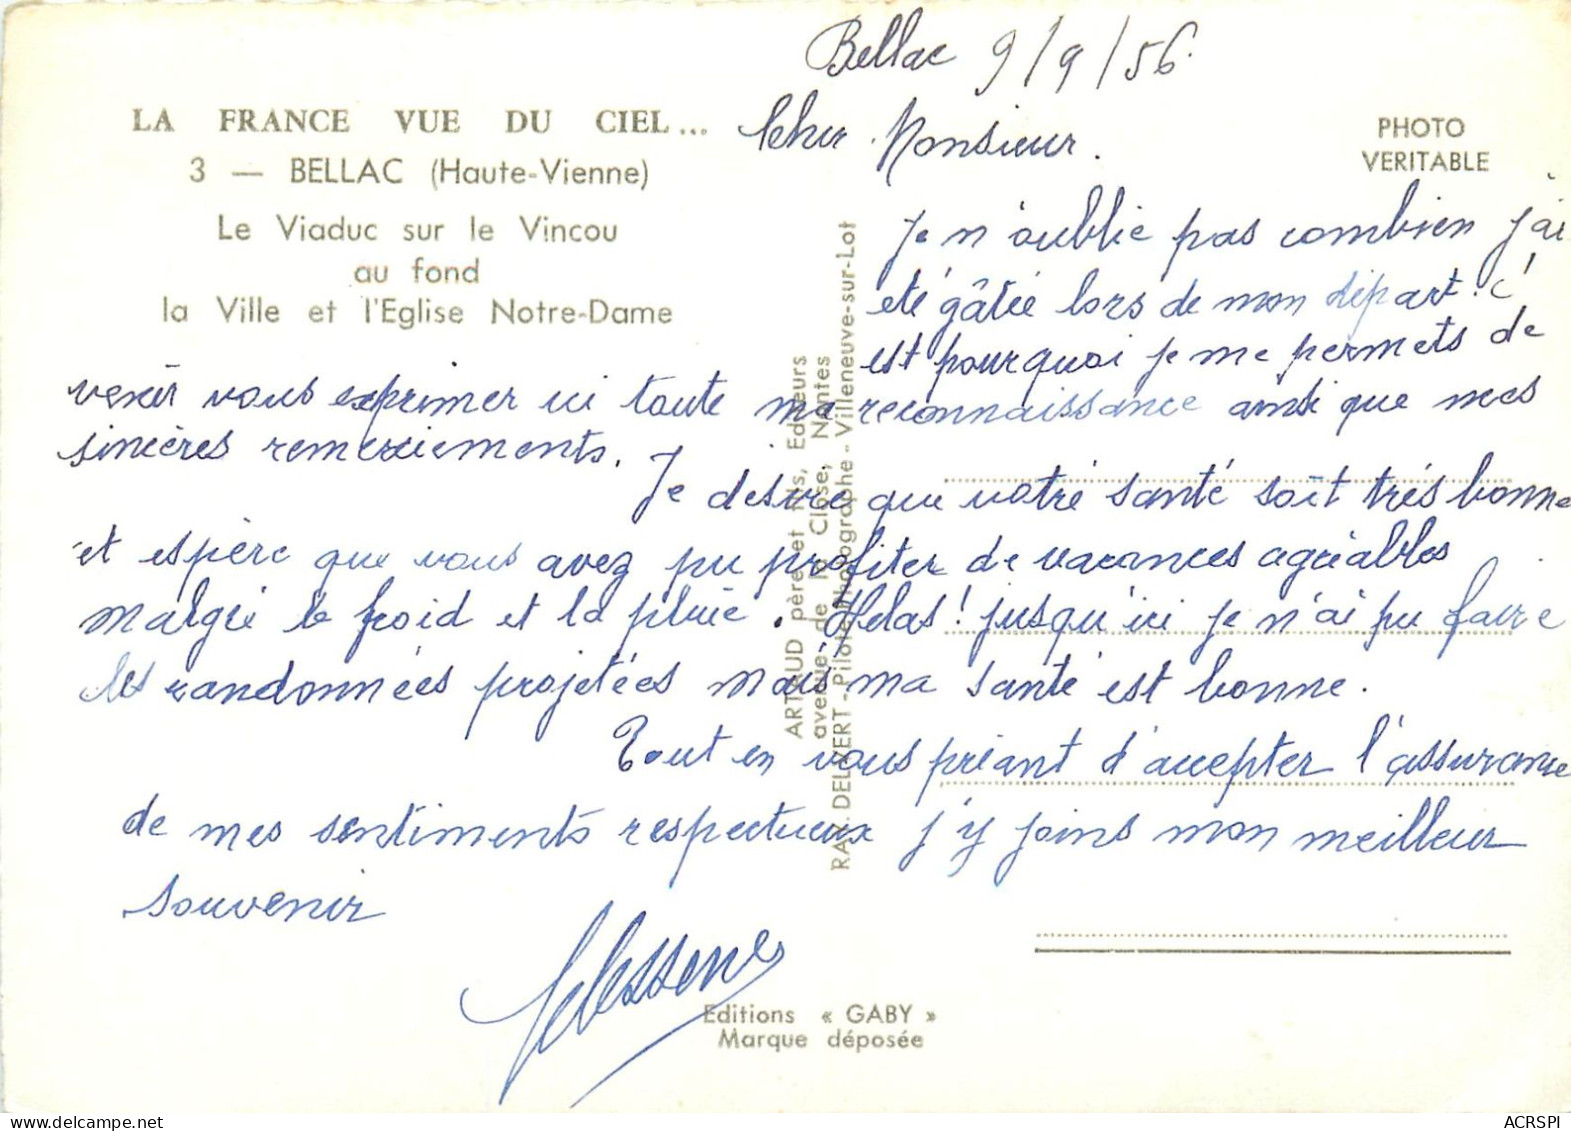 LA FRANCE VUE DU CIEL...
3 — BELLAC (Haute-Vienne)
Le Viaduc sur le Vincou
au fond
la Ville et l'Eglise Notre-Dame
PHOTO
VERITABLE
Bellac 9/9/56
Cher Monsieur.
Je n'oublie pas combien j'ai
été gâtée lors de mon départ. C'
est pourquoi je me permets de
venir vous exprimer ici toute ma reconnaissance ainsi que mes
sincères remerciements.
Je désire que votre santé soit très bonne
et espère que vous avez pu profiter de vacances agréables
malgré le froid et la pluie. Hélas! jusqu'ici je n'ai pu faire
les randonnées projetées mais ma santé est bonne.
Tout en vous priant d'accepter l'assurance
de mes sentiments respectueux j'y joins mon meilleur
souvenir
ARTAUD père et fils, Editeurs
avenue de la Close, Nantes
RAY. DELVERT - Pilote-Photographe - Villeneuve-sur-Lot
Editions « GABY »
Marque déposée
ACRSPI